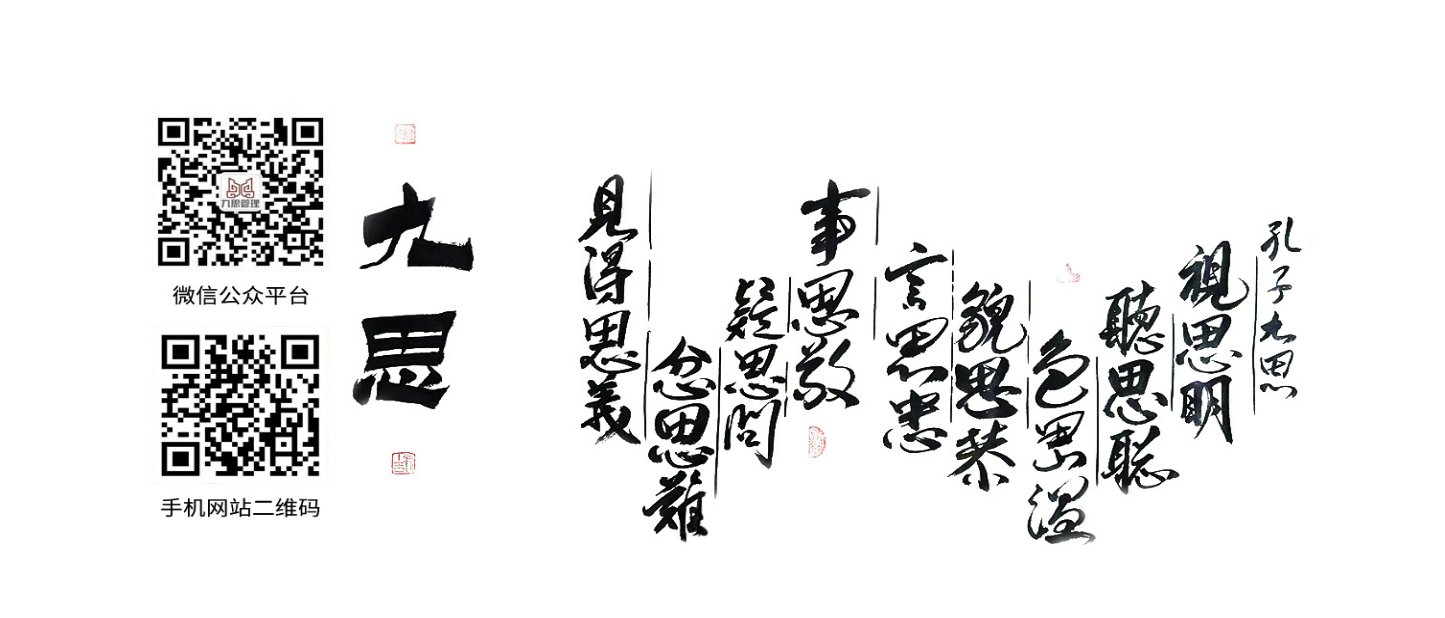 九思管理
微信公众平台
手机网站二维码
九思
孔子九思
視思明
聽思聪
色思温
貌思恭
言思忠
事思敬
疑思問
忿思難
見得思義